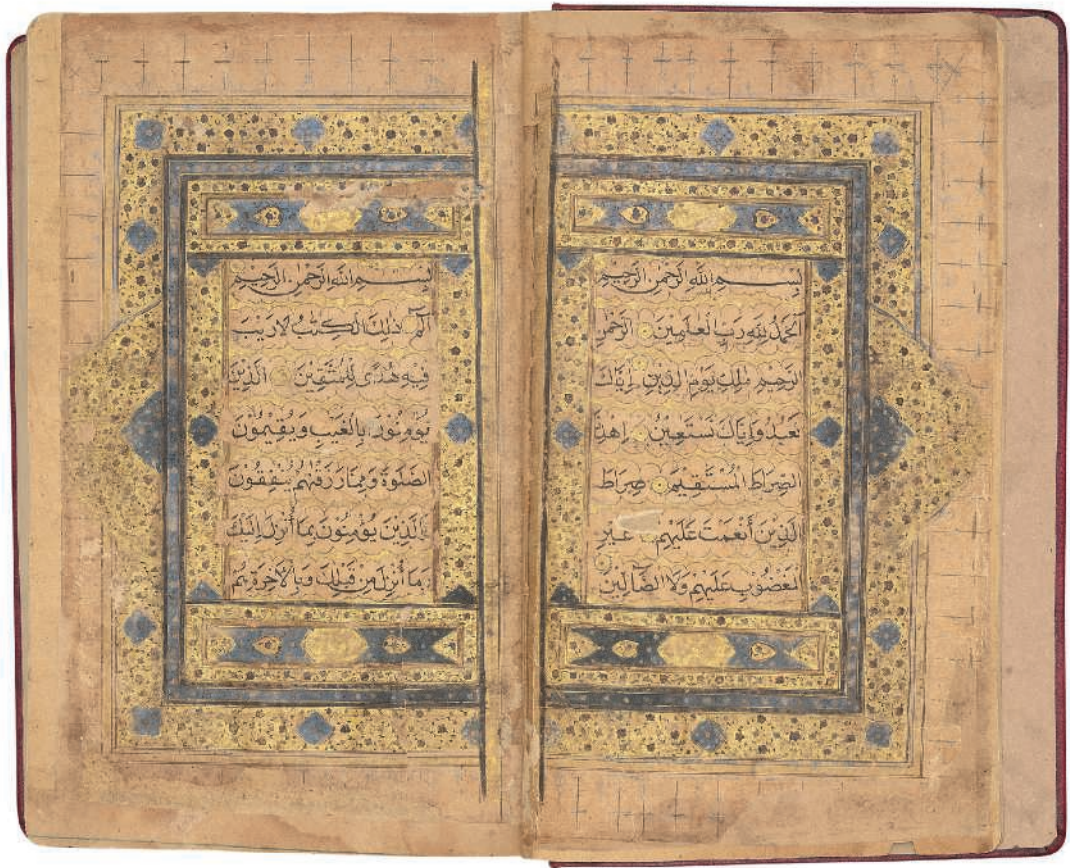 بِسْمِ اللّٰهِ الرَّحْمٰنِ الرَّحِيمِ
اَلْحَمْدُ لِلّٰهِ رَبِّ الْعٰلَمِينَ الرَّحْمٰنِ
الرَّحِيمِ مٰلِكِ يَوْمِ الدِّينِ اِيَّاكَ
نَعْبُدُ وَاِيَّاكَ نَسْتَعِينُ اِهْدِنَا
الصِّرَاطَ الْمُسْتَقِيمَ صِرَاطَ
الَّذِينَ أَنْعَمْتَ عَلَيْهِمْ غَيْرِ
الْمَغْضُوبِ عَلَيْهِمْ وَلَا الضَّالِّينَ
بِسْمِ اللّٰهِ الرَّحْمٰنِ الرَّحِيمِ
الٓمٓ ذٰلِكَ الْكِتٰبُ لَا رَيْبَ
فِيهِ هُدًى لِلْمُتَّقِينَ الَّذِينَ
يُؤْمِنُونَ بِالْغَيْبِ وَيُقِيمُونَ
الصَّلٰوةَ وَمِمَّا رَزَقْنٰهُمْ يُنْفِقُونَ
وَالَّذِينَ يُؤْمِنُونَ بِمَا أُنْزِلَ اِلَيْكَ
وَمَا أُنْزِلَ مِنْ قَبْلِكَ وَبِالْاٰخِرَةِ هُمْ